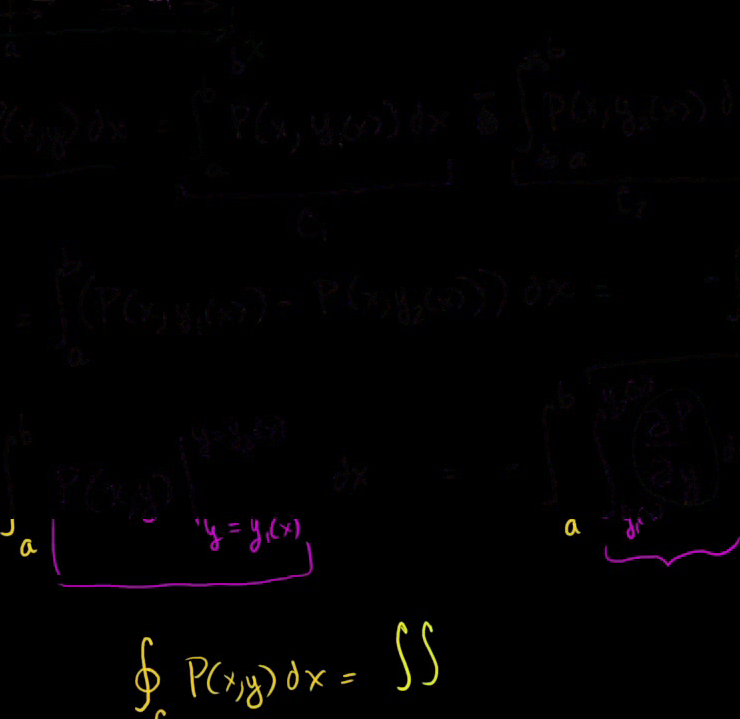 a b x
P(x,y) dx = ∫_a^b P(x, y₁(x)) dx - ∫_a^b P(x, y₂(x)) d
C₁ C₂
= ∫_a^b (P(x, y₁(x)) - P(x, y₂(x))) dx = -
∫_a^b P(x,y) |_{y = y₁(x)}^{y = y₂(x)} dx = - ∫_a^b ∫_{y₁(x)}^{y₂(x)} ∂P/∂y d
∮_c P(x,y) dx = ∬